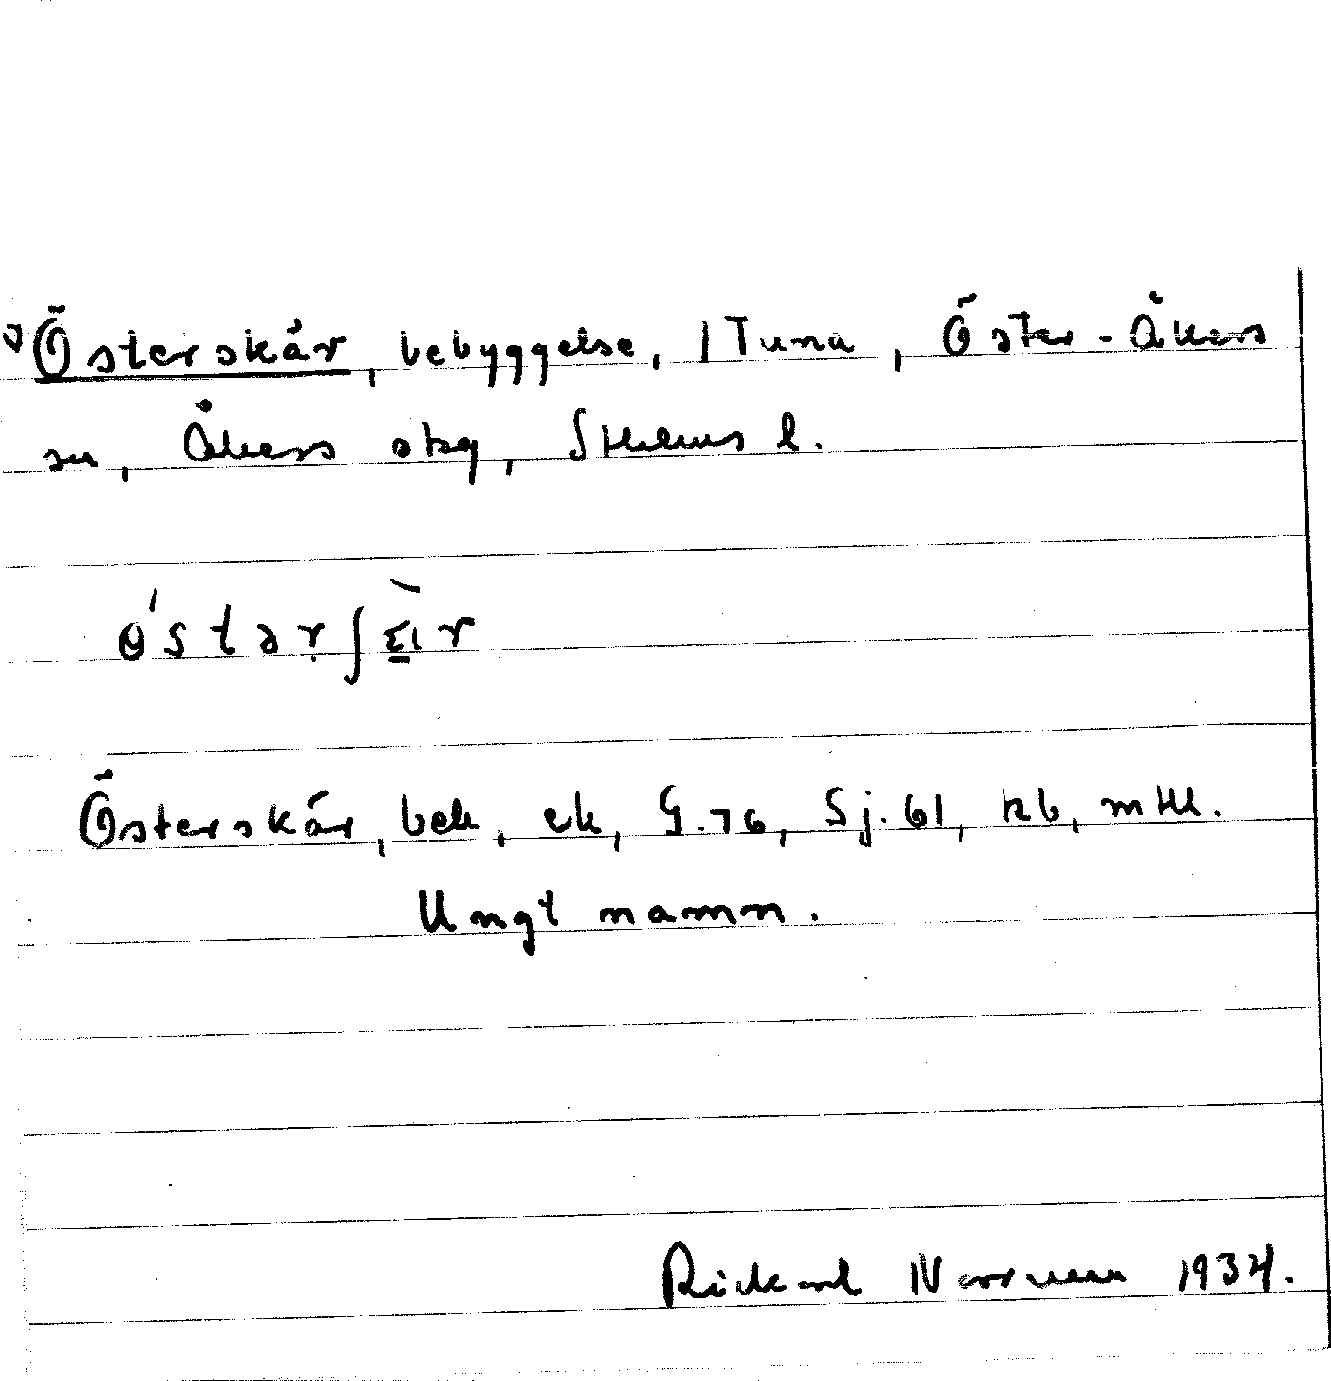 Österskär, bebyggelse, 1 Tuna, Öster-Åkers
sn, Åkers skg, Sthlms l.
Österskär, beb, ek, G.76, Sj.61, kb, mtkl.
Ungt namn.
Rickard Norrman 1934.